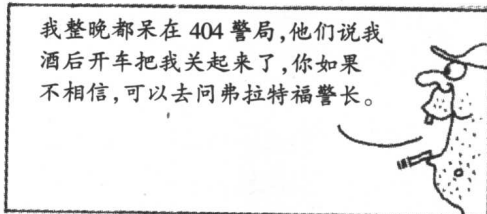 我整晚都呆在 404 警局,他们说我
酒后开车把我关起来了,你如果
不相信,可以去问弗拉特福警长。